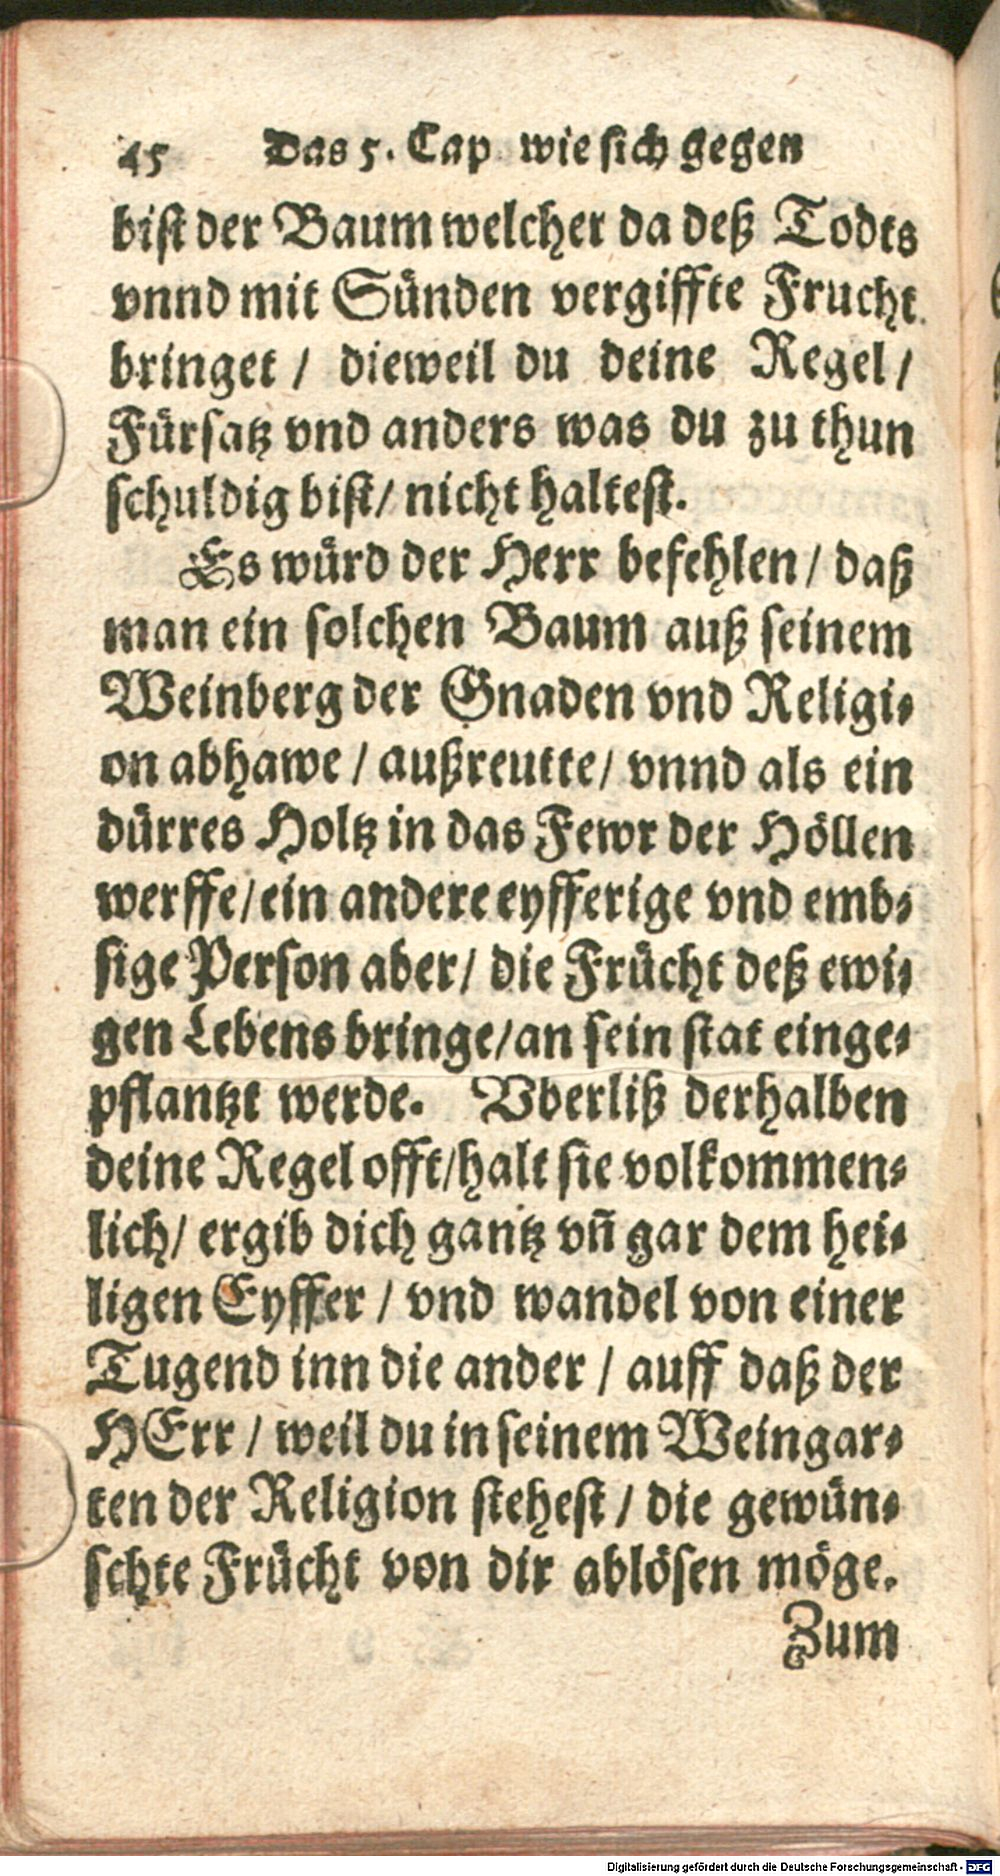 45 Das 5. Cap wie sich gegen
bist der Baum welcher da deß Todts
vnnd mit Sünden vergiffte Frucht
bringet / dieweil du deine Regel /
Fürsatz vnd anders was du zu thun
schuldig bist / nicht haltest.
Es würd der Herr befehlen / daß
man ein solchen Baum auß seinem
Weinberg der Gnaden vnd Religi-
on abhawe / außreutte / vnnd als ein
dürres Holtz in das Fewr der Höllen
werffe / ein andere eyfferige vnd emb-
sige Person aber / die Frücht deß ewi-
gen Lebens bringe / an sein stat einge-
pflantzt werde. Vberliß derhalben
deine Regel offt / halt sie volkommen-
lich / ergib dich gantz vñ gar dem hei-
ligen Eyffer / vnd wandel von einer
Tugend inn die ander / auff daß der
HErr / weil du in seinem Weingar-
ten der Religion stehest / die gewün-
schte Frücht von dir ablösen möge.
Zum
Digitalisierung gefördert durch die Deutsche Forschungsgemeinschaft - DFG